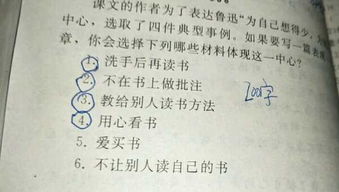 课文的作者为了表达鲁迅“为自己想得少,为
中心,选取了四件典型事例。如果要写一篇
章,你会选择下列哪些材料体现这一中心?
1. 洗手后再读书
2. 不在书上做批注
3. 教给别人读书方法
4. 用心看书
5. 爱买书
6. 不让别人读自己的书
200字